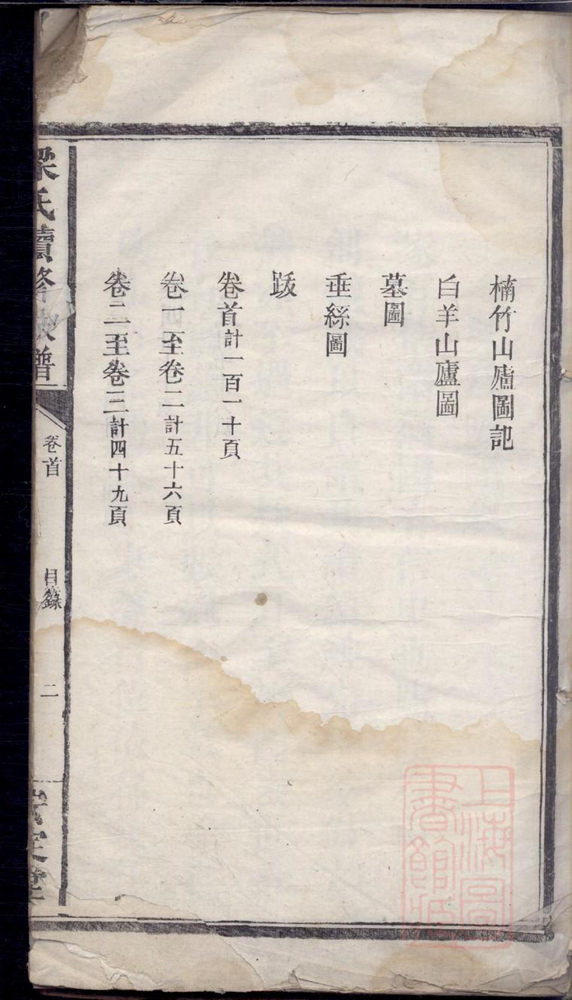 楠竹山廬圖記
白羊山廬圖
墓圖
垂絲圖
跋
卷首計一百一十頁
卷一至卷二計五十六頁
卷二至卷三計四十九頁
梁氏續修族譜
卷首
目錄
二
上海圖書館藏